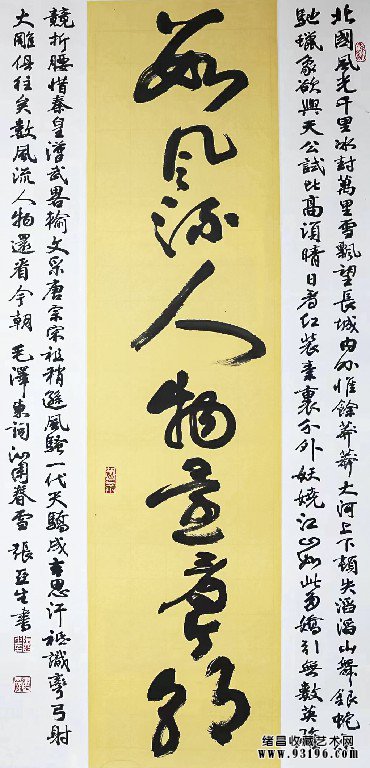 北國風光千里冰封萬里雪飄望長城内外惟餘莽莽大河上下頓失滔滔山舞銀蛇
馳蠟象欲與天公試比高須晴日看红装素裹分外妖嬈江山如此多嬌引無數英雄
數風流人物還看今朝
競折腰惜秦皇漢武畧輸文采唐宗宋祖稍遜風騷一代天驕成吉思汗祗識彎弓射
大雕俱往矣數風流人物還看今朝 毛澤東詞沁園春雪 張亞生書
绪昌收藏艺术网
www.93196.com